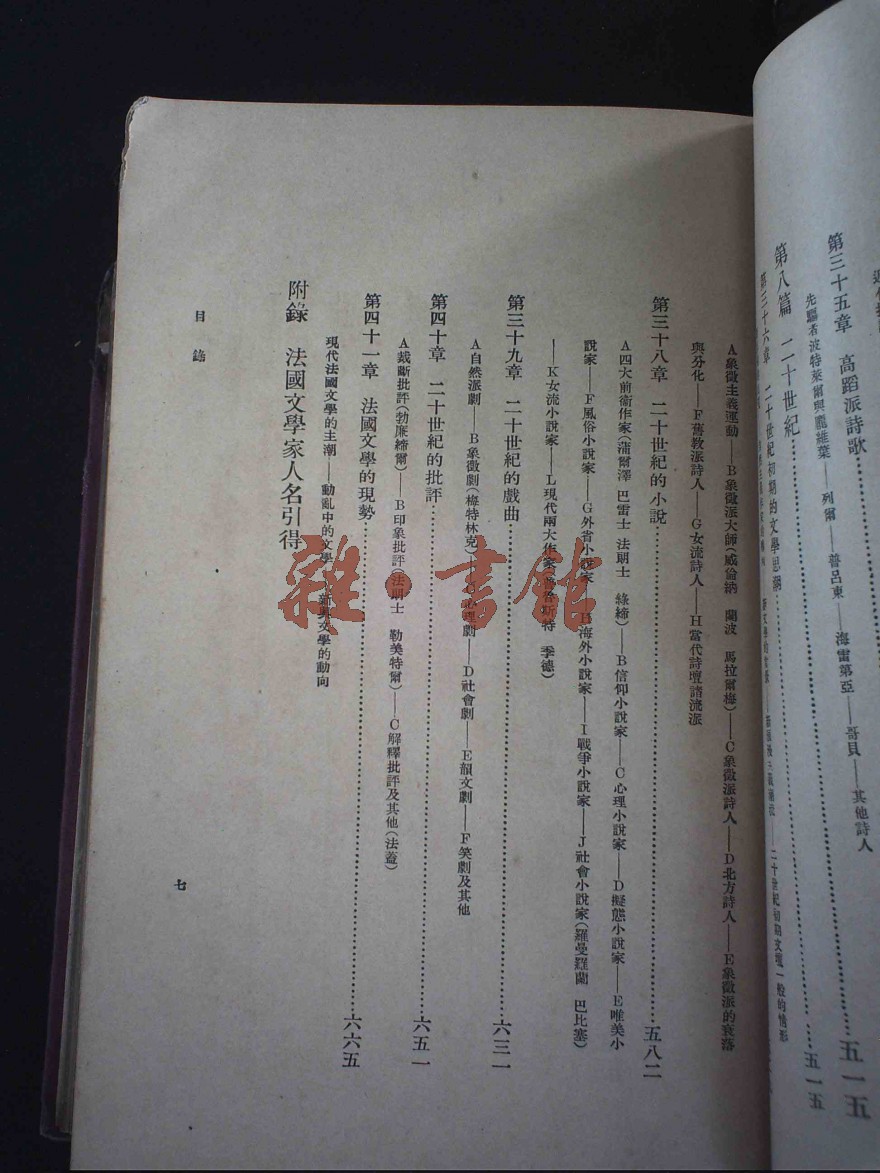 第三十五章 高蹈派詩歌……五一五
先驅者波特萊爾與龐維葉——列爾——普呂東——海雷第亞——哥貝——其他詩人
第八篇 二十世紀……五一五
第三十六章 二十世紀初期的文學思潮
二十世紀初期文壇一般的情形
A象徵主義運動——B象徵派大師(威倫納 蘭波 馬拉爾梅)——C象徵派詩人——D北方詩人——E象徵派的衰落
與分化——F舊教派詩人——G女流詩人——H當代詩壇諸流派
第三十八章 二十世紀的小說……五八二
A四大前衛作家(蒲爾澤 巴雷士 法朗士 綠締)——B信仰小說家——C心理小說家——D擬態小說家——E唯美小
說家——F風俗小說家——G外省小說家——H海外小說家——I戰爭小說家——J社會小說家(羅曼羅蘭 巴比塞)
——K女流小說家——L現代兩大作家(馬魯斯特 季德)
第三十九章 二十世紀的戲曲……六三一
A自然派劇——B象徵劇(梅特林克)——C心理劇——D社會劇——E韻文劇——F笑劇及其他
第四十章 二十世紀的批評……六五一
A裁斷批評(勃廉締爾)——B印象批評(法朗士 勒美特爾)——C解釋批評及其他(法蓋)
第四十一章 法國文學的現勢……六六五
現代法國文學的主潮——動亂中的文學——新興文學的動向
附錄 法國文學家人名引得
目錄
七
雜·書館